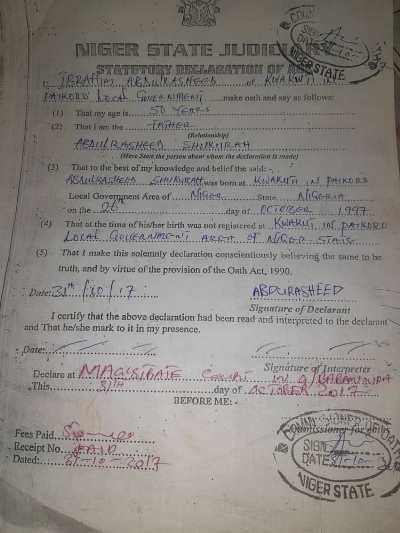 NIGER STATE JUDICIARY
STATUTORY DECLARATION OF AGE
I, IBRAHIM ABDULRASHEED of KWAKUTI IN
PAIKORO LOCAL GOVERNMENT make oath and say as follows:
(1) That my age is 50 YEARS
(2) That I am the FATHER
(Relationship)
ABDULRASHEED SHUKURAH
(Here State the person about whom the declaration is made)
(3) That to the best of my knowledge and belief the said:-
ABDULRASHEED SHUKURAH was born at KWAKUTI IN PAIKORO
Local Government Area of NIGER State NIGERIA
on the 26th day of OCTOBER 1997
(4) That at the time of his/her birth was not registered at KWAKUTI IN PAIKORO
LOCAL GOVERNMENT AREA OF NIGER STATE
(5) That I make this solemnly declaration conscientiously believing the same to be
truth, and by virtue of the provision of the Oath Act, 1990.
Date: 31th/10/17 ABDURASHEED
Signature of Declarant
I certify that the above declaration had been read and interpreted to the declarant
and That he/she mark to it in my presence.
Date:
Signature of Interpreter
Declare at MAGISTRATE COURT
This 31th day of OCTOBER 2017
BEFORE ME: -
Commissioner for Oaths
Fees Paid
Receipt No. PAID
Dated: 31-10-2017
SIGN
DATE
NIGER STATE